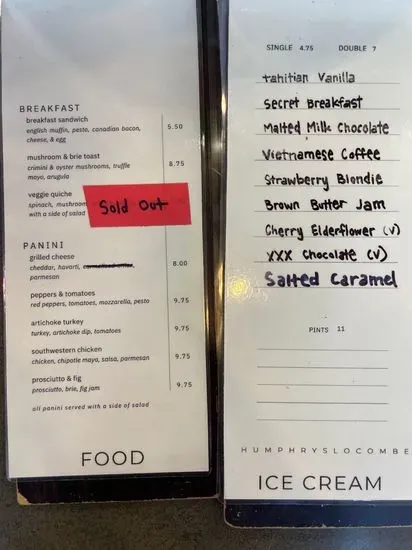 BREAKFAST
breakfast sandwich
english muffin, pesto, canadian bacon, 5.50
cheese, & egg
mushroom & brie toast
crimini & oyster mushrooms, truffle 8.75
mayo, arugula
veggie quiche
spinach, mushroom
with a side of salad
Sold Out
PANINI
grilled cheese
cheddar, havarti, 8.00
parmesan
peppers & tomatoes
red peppers, tomatoes, mozzarella, pesto 9.75
artichoke turkey
turkey, artichoke dip, tomatoes 9.75
southwestern chicken
chicken, chipotle mayo, salsa, parmesan 9.75
prosciutto & fig
prosciutto, brie, fig jam 9.75
all panini served with a side of salad
FOOD
SINGLE 4.75 DOUBLE 7
tahitian Vanilla
Secret Breakfast
Malted Milk Chocolate
Vietnamese Coffee
Strawberry Blondie
Brown Butter Jam
Cherry Elderflower (V)
XXX Chocolate (V)
Salted Caramel
PINTS 11
HUMPHRYSLOCOMBE
ICE CREAM